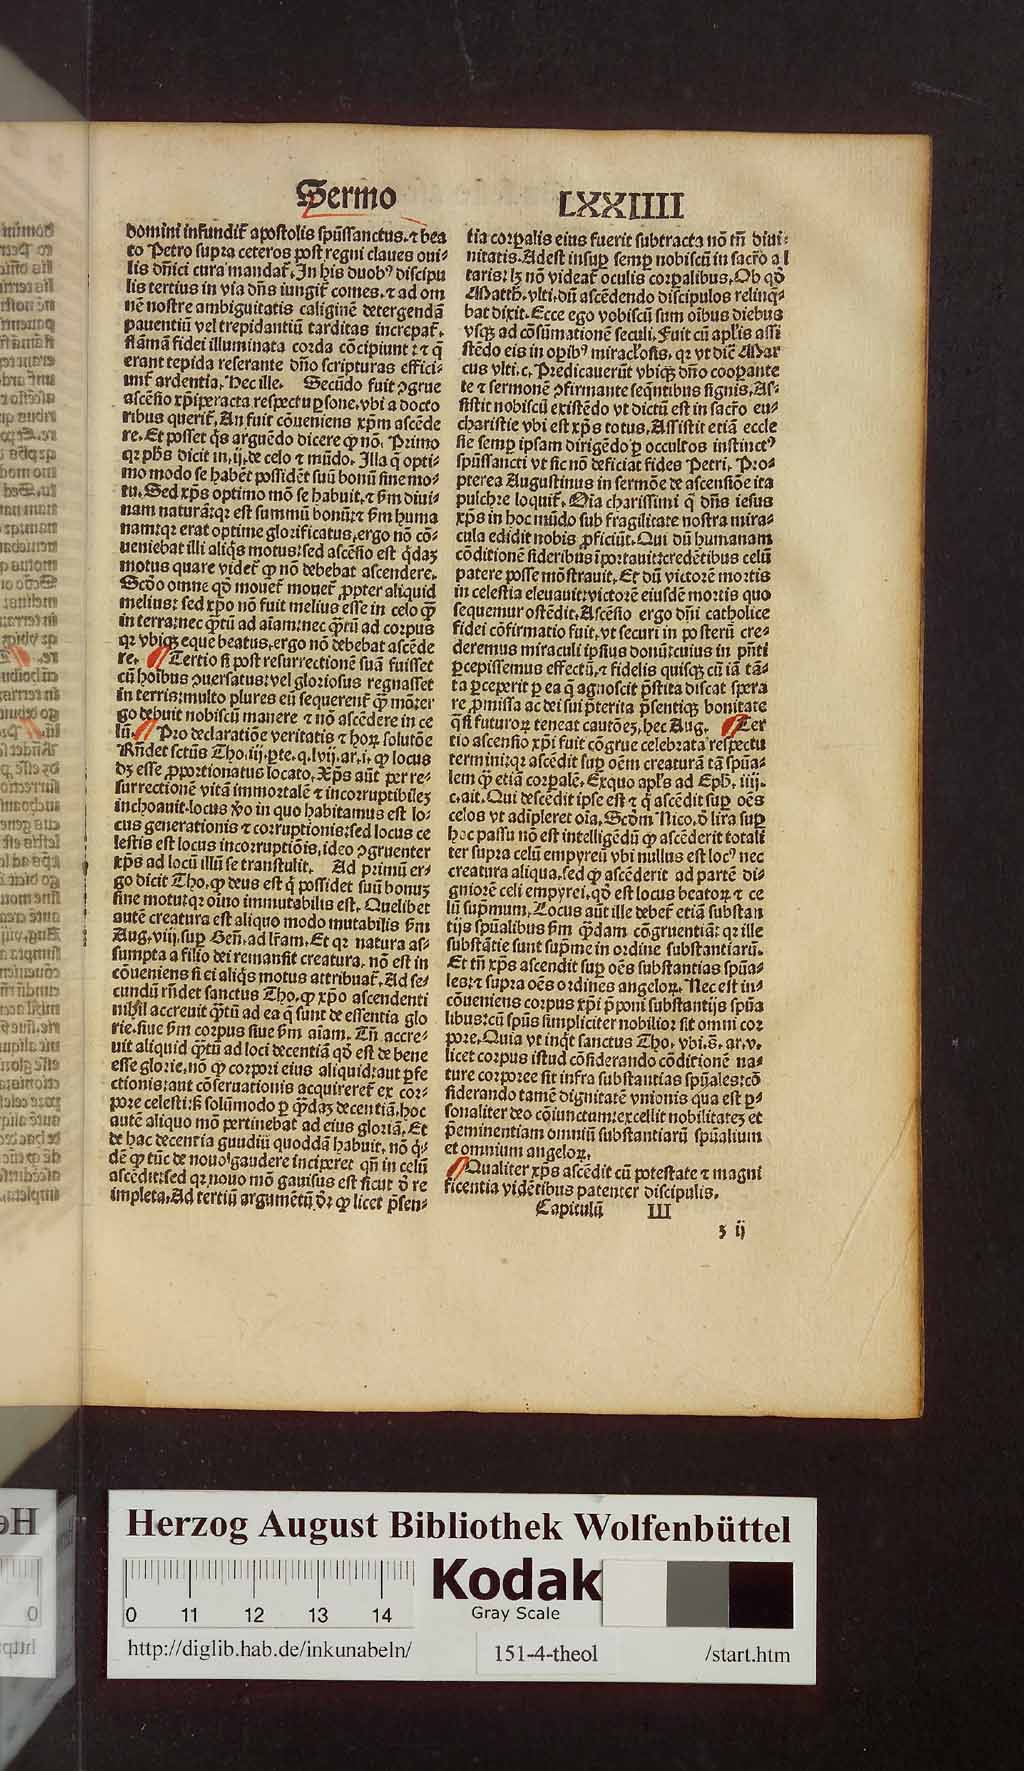 Sermo LXXIIII
domini infundit᷑ apostolis spūssanctus. ⁊ bea
to Petro supra ceteros post regni claues oui-
lis dn̄ici cura mandat᷑. In his duobꝰ discipu
lis tertius in via dn̄s iungit᷑ comes. ⁊ ad om
nē nostre ambiguitatis caliginē detergendā
pauentiū vel trepidantiū tarditas increpat᷑.
flāmā fidei illuminata corda cōcipiunt: ⁊ q̄
erant tepida reserante dn̄o scripturas effici-
unt᷑ ardentia. Hec ille. Secūdo fuit ꝯgrue
ascēsio xp̄i peracta respectu ꝑsone. vbi a docto
ribus querit᷑. An fuit cōueniens xp̄m ascēde
re. Et posset q̄s arguēdo dicere ꝙ nō. Primo
qꝛ ph̄s dicit in. ij. de celo ⁊ mūdo. Illa q̄ opti-
mo modo se habēt possidēt suū bonū sine mo-
tu. Sed xp̄s optimo mō se habuit. ⁊ fm diui-
nam naturā: qꝛ est summū bonū: ⁊ fm huma
nam: qꝛ erat optime glorificatus. ergo nō cō-
ueniebat illi aliq̄s motus: sed ascēsio est q̄daꝫ
motus quare videt᷑ ꝙ nō debebat ascendere.
Scd̄o omne qd̄ mouet᷑ mouet᷑ ꝓpter aliquid
melius: sed xp̄o nō fuit melius esse in celo q̄ꝫ
in terra: nec q̄tū ad aīam: nec q̄tū ad corpus
qꝛ vbiqꝫ eque beatus. ergo nō debebat ascēde
re. Tertio si post resurrectionē suā fuisset
cū hoībus ꝯuersatus: vel gloriosus regnasset
in terris: multo plures eū sequerent᷑ q̄ mō: er
go debuit nobiscū manere ⁊ nō ascēdere in ce
lū. Pro declaratiōe veritatis ⁊ hoꝝ solutōe
Rn̄det sctūs Tho. iij. ꝑte. q. lvij. ar. i. ꝙ locus
dꝫ esse ꝓportionatus locato. Xp̄s aūt per re-
surrectionē vitā immortalē ⁊ incorruptibileꝫ
inchoauit. locus v̄o in quo habitamus est lo-
cus generationis ⁊ corruptionis: sed locus ce
lestis est locus incorruptiōnis. ideo ꝯgruenter
xp̄s ad locū illū se transtulit. Ad primū er-
go dicit Tho. ꝙ deus est q̄ possidet suū bonuꝫ
sine motu: qꝛ oīno immutabilis est. Quelibet
autē creatura est aliquo modo mutabilis fm
Aug. viij. suꝑ Gen̄. ad lr̄am. Et qꝛ natura as-
sumpta a filio dei remansit creatura. nō est in
cōueniens si ei aliq̄s motus attribuat᷑. Ad se-
cundū rn̄det sanctus Tho. ꝙ xp̄o ascendenti
nihil accreuit q̄tū ad ea q̄ sunt de essentia glo
rie. siue fm corpus siue fm aīam. Tn̄ accre-
uit aliquid q̄tū ad loci decentiā qd̄ est de bene
esse glorie. nō ꝙ corpori eius aliquid: aut ꝑfe
ctionis: aut cōseruationis acquireret᷑ ex cor-
pore celesti: s̄ solūmodo ꝑ q̄daꝫ decentiā. hoc
autē aliquo mō pertinebat ad eius gloriā. Et
de hac decentia guudiū quoddā habuit. nō q̄-
dē ꝙ tūc de nouo gaudere inciperet qn̄ in celū
ascēdit: sed qꝛ nouo mō gauisus est sicut d̄ re
impleta. Ad tertiū argumētū d̄r ꝙ licet p̄sen-
tia corꝑalis eius fuerit subtracta nō tn̄ diui-
nitatis. Adest insuꝑ semꝑ nobiscū in sacr̄o al
taris: lꝫ nō videat᷑ oculis corꝑalibus. Ob qd̄
Matth. vlti. dū ascēdendo discipulos relinq̄-
bat dixit. Ecce ego vobiscū sum oībus diebus
vsqꝫ ad cōsūmationē seculi. Fuit cū apl̄is assi
stēdo eis in oꝑibꝰ miracl̓osis. qꝛ vt dic̄ Mar
cus vlti. c. Predicauerūt vbiqꝫ dn̄o cooꝑante
te ⁊ sermonē ꝯfirmante seq̄ntibus signis. As-
sistit nobiscū existēdo vt dictū est in sacr̄o eu-
charistie vbi est xp̄s totus. Assistit etiā eccle
sie semꝑ ipsam dirigēdo ꝑ occultos instinctꝰ
spūssancti vt sic nō deficiat fides Petri. Pro-
pterea Augustinus in sermōe de ascensiōe ita
pulchre loquit᷑. Oīa charissimi q̄ dn̄s iesus
xp̄s in hoc mūdo sub fragilitate nostra mira-
cula edidit nobis ꝓficiūt. Qui dū humanam
cōditionē sideribus īportauit: credētibus celū
patere posse mōstrauit. Et dū victorē mortis
in celestia eleuauit: victorē eiusdē mortis quo
sequemur ostēdit. Ascēsio ergo dn̄i catholice
fidei cōfirmatio fuit. vt securi in posterū cre-
deremus miraculi ipsius donū: cuius in pn̄ti
ꝑcepissemus effectū. ⁊ fidelis quisqꝫ cū iā tā-
ta ꝑceperit ꝑ ea q̄ agnoscit p̄stita discat spera
re ꝓmissa ac dei sui p̄terita p̄sentiqꝫ bonitate
q̄si futuroꝝ teneat cautōeꝫ. hec Aug. Ter
tio ascensio xp̄i fuit cōgrue celebrata respectu
termini: qꝛ ascēdit suꝑ oēm creaturā tā spūa-
lem q̄ etiā corꝑalē. Exquo apl̄s ad Eph. iiij.
c. ait. Qui descēdit ipse est ⁊ q̄ ascēdit suꝑ oēs
celos vt adipleret oīa. Scd̄m Nico. d̄ lira suꝑ
hoc passu nō est intelligēdū ꝙ ascēderit totali
ter supra celū empyreū vbi nullus est locꝰ nec
creatura aliqua. sed ꝙ ascēderit ad partē di-
gniorē celi empyrei. qd̄ est locus beatoꝝ ⁊ ce
lū supmum. Locus aūt ille debet᷑ etiā substan
tijs spūalibus fm q̄dam cōgruentiā: qꝛ ille
substātie sunt supme in ordine substantiarū.
Et tn̄ xp̄s ascendit suꝑ oēs substantias spūa-
les: ⁊ supra oēs ordines angeloꝝ. Nec est in-
cōueniens corpus xp̄i p̄poni substantijs spūa
libus: cū spūs simpliciter nobilior sit omni cor
pore. Quia vt inq̄t sanctus Tho. vbi. s̄. ar. v.
licet corpus istud cōsiderando cōditionē na-
ture corporee sit infra substantias spūales: cō
siderando tamē dignitatē vnionis qua est ꝑ-
sonaliter deo cōiunctum: excellit nobilitateꝫ et
p̄eminentiam omniū substantiarū spūalium
et omnium angeloꝝ.
Qualiter xp̄s ascēdit cū potestate ⁊ magni
ficentia vidētibus patenter discipulis.
Capitulū III
ꝫ ij
Herzog August Bibliothek Wolfenbüttel
0 11 12 13 14
Kodak
Gray Scale
http://diglib.hab.de/inkunabeln/ 151-4-theol /start.htm